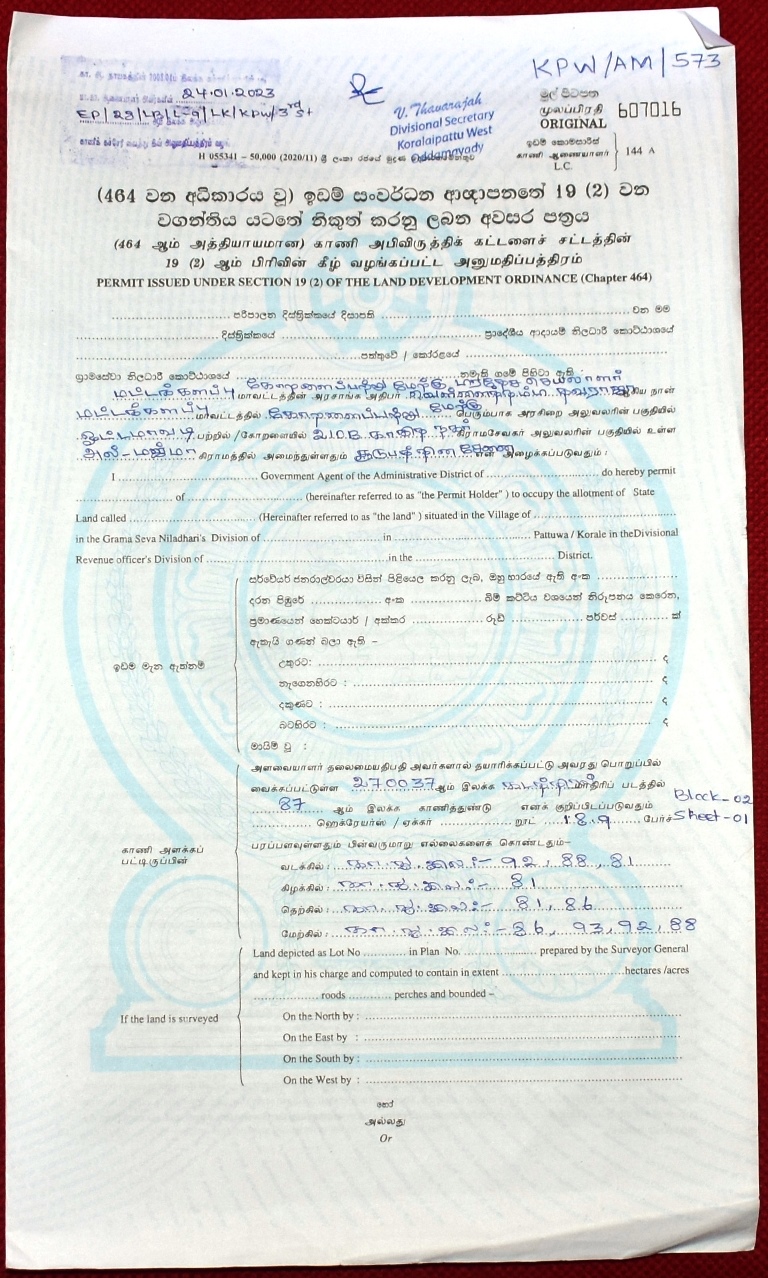 KPW/AM/573
24.01.2023
EP/28/LB/L-9/LK/KPW/3rd st
V. Thavarajah
Divisional Secretary
Koralaipattu West
Oddamavady
මුල් පිටපත
மூலப்பிரதி 607016
ORIGINAL
ඉඩම් කොමසාරිස්
காணி ஆணையாளர் 144 A
L.C.
H 055341 – 50,000 (2020/11) ශ්‍රී ලංකා රජයේ මුද්‍රණ
(464 වන අධිකාරය වූ) ඉඩම් සංවර්ධන ආඥාපනතේ 19 (2) වන
වගන්තිය යටතේ නිකුත් කරනු ලබන අවසර පත්‍රය
(464 ஆம் அத்தியாயமான) காணி அபிவிருத்திக் கட்டளைச் சட்டத்தின்
19 (2) ஆம் பிரிவின் கீழ் வழங்கப்பட்ட அனுமதிப்பத்திரம்
PERMIT ISSUED UNDER SECTION 19 (2) OF THE LAND DEVELOPMENT ORDINANCE (Chapter 464)
........ පරිපාලන දිස්ත්‍රික්කයේ දිසාපති ........ වන මම
........ දිස්ත්‍රික්කයේ ........ ප්‍රාදේශීය ආදායම් නිලධාරී කොට්ඨාශයේ
........ පත්තුවේ / කෝරළයේ ........
ග්‍රාමසේවා නිලධාරී කොට්ඨාශයේ ........ නමැති ගමේ පිහිටා ඇති
மட்டக்களப்பு கோறளைப்பற்று மேற்கு பிரதேச செயலாளர்
மாவட்டத்தின் அரசாங்க அதிபர் ஆகிய நான்
மட்டக்களப்பு மாவட்டத்தில் கோறளைப்பற்று மேற்கு பெரும்பாக அரசிறை அலுவலரின் பகுதியில்
ஓட்டமாவடி பற்றில் /கோறளையில் கிராமசேவகர் அலுவலரின் பகுதியில் உள்ள
அல்-மஜ்மா கிராமத்தில் அமைந்துள்ளதும் என அழைக்கப்படுவதும் :
I ........ Government Agent of the Administrative District of ........ do hereby permit
........ of ........ (hereinafter referred to as "the Permit Holder" ) to occupy the allotment of State
Land called ........ (Hereinafter referred to as "the land" ) situated in the Village of ........
in the Grama Seva Niladhari's Division of ........ in ........ Pattuwa / Korale in theDivisional
Revenue officer's Division of ........ in the ........ District.
සර්වේයර් ජනරාල්වරයා විසින් පිළියෙල කරනු ලැබ, ඔහු භාරයේ ඇති අංක ........
දරන පිඹුරේ ........ අංක ........ බිම් කට්ටිය වශයෙන් නිරූපනය කෙරෙන,
ප්‍රමාණයෙන් හෙක්ටයාර් / අක්කර ........ රූඩ් ........ පර්චස් ........ ක්
ඇතැයි ගණන් බලා ඇති –
ඉඩම මැන ඇත්නම්
උතුරට: ........ ද
නැගෙනහිරට : ........ ද
දකුණට : ........ ද
බටහිරට : ........ ද
මායිම් වූ :
அளவையாளர் தலைமையதிபதி அவர்களால் தயாரிக்கப்பட்டு அவரது பொறுப்பில்
வைக்கப்பட்டுள்ள 270037 ஆம் இலக்க மாதிரிப் படத்தில்
87 ஆம் இலக்க காணித்துண்டு எனக் குறிப்பிடப்படுவதும் Block-02
........ ஹெக்ரேயர்ஸ் / ஏக்கர் ........ றூட் 18.9 பேர்ச் Sheet-01
காணி அளக்கப்
பட்டிருப்பின்
பரப்பளவுள்ளதும் பின்வருமாறு எல்லைகளைக் கொண்டதும்–
வடக்கில் : கா.து.இல:- 92, 88, 81
கிழக்கில் : கா.து.இல:- 81
தெற்கில் : கா.து.இல:- 81, 86
மேற்கில் : கா.து.இல:- 86, 93, 92, 88
Land depicted as Lot No ........ in Plan No. ........ prepared by the Surveyor General
and kept in his charge and computed to contain in extent ........ hectares /acres
........ roods ........ perches and bounded –
If the land is surveyed
On the North by : ........
On the East by : ........
On the South by : ........
On the West by : ........
හෝ
அல்லது
Or